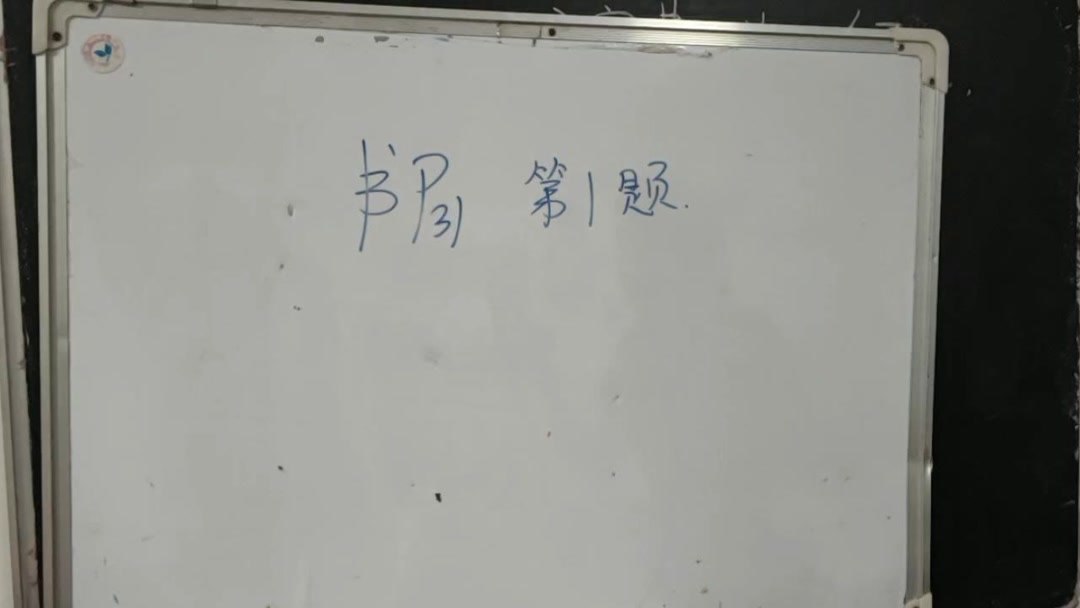 书P31 第1题.